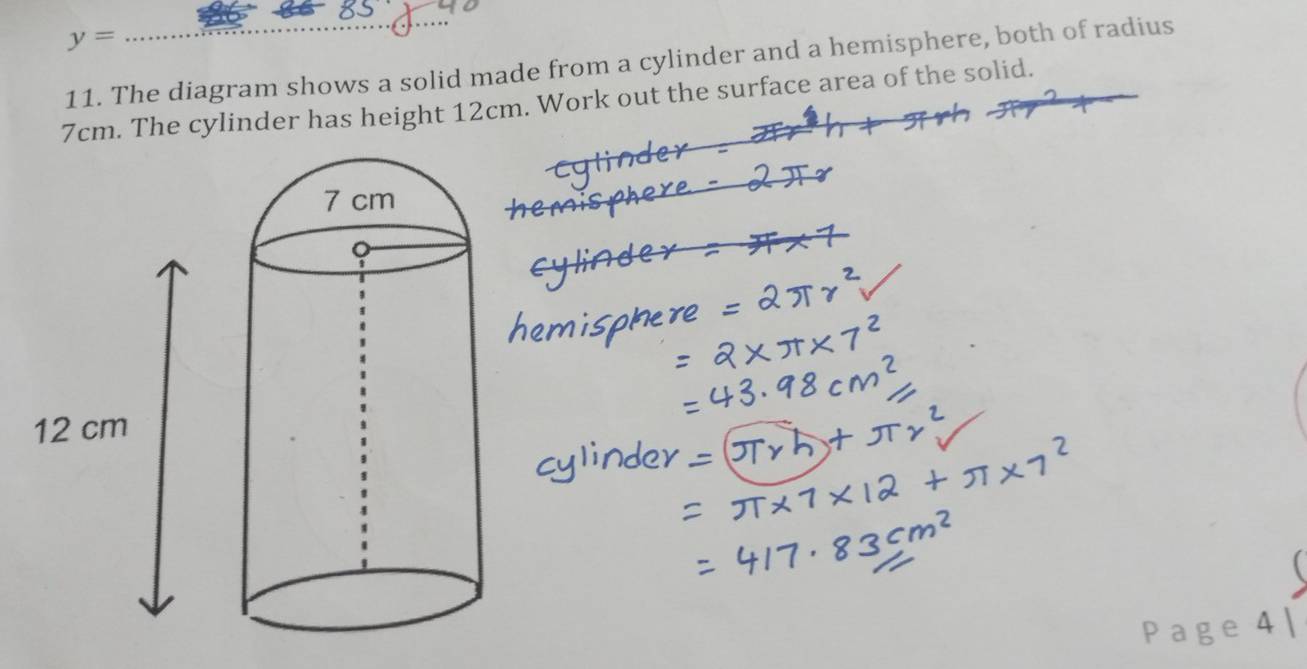 y = .......... 85 ..........
11. The diagram shows a solid made from a cylinder and a hemisphere, both of radius
7cm. The cylinder has height 12cm. Work out the surface area of the solid.
cylinder = πr²h + πrh πr² +
hemisphere = 2πr
cylinder = π×7
7 cm
12 cm
hemisphere = 2πr²
= 2×π×7²
= 43.98 cm²
cylinder = πrh + πr²
= π×7×12 + π×7²
= 417.83cm²
Page 4|